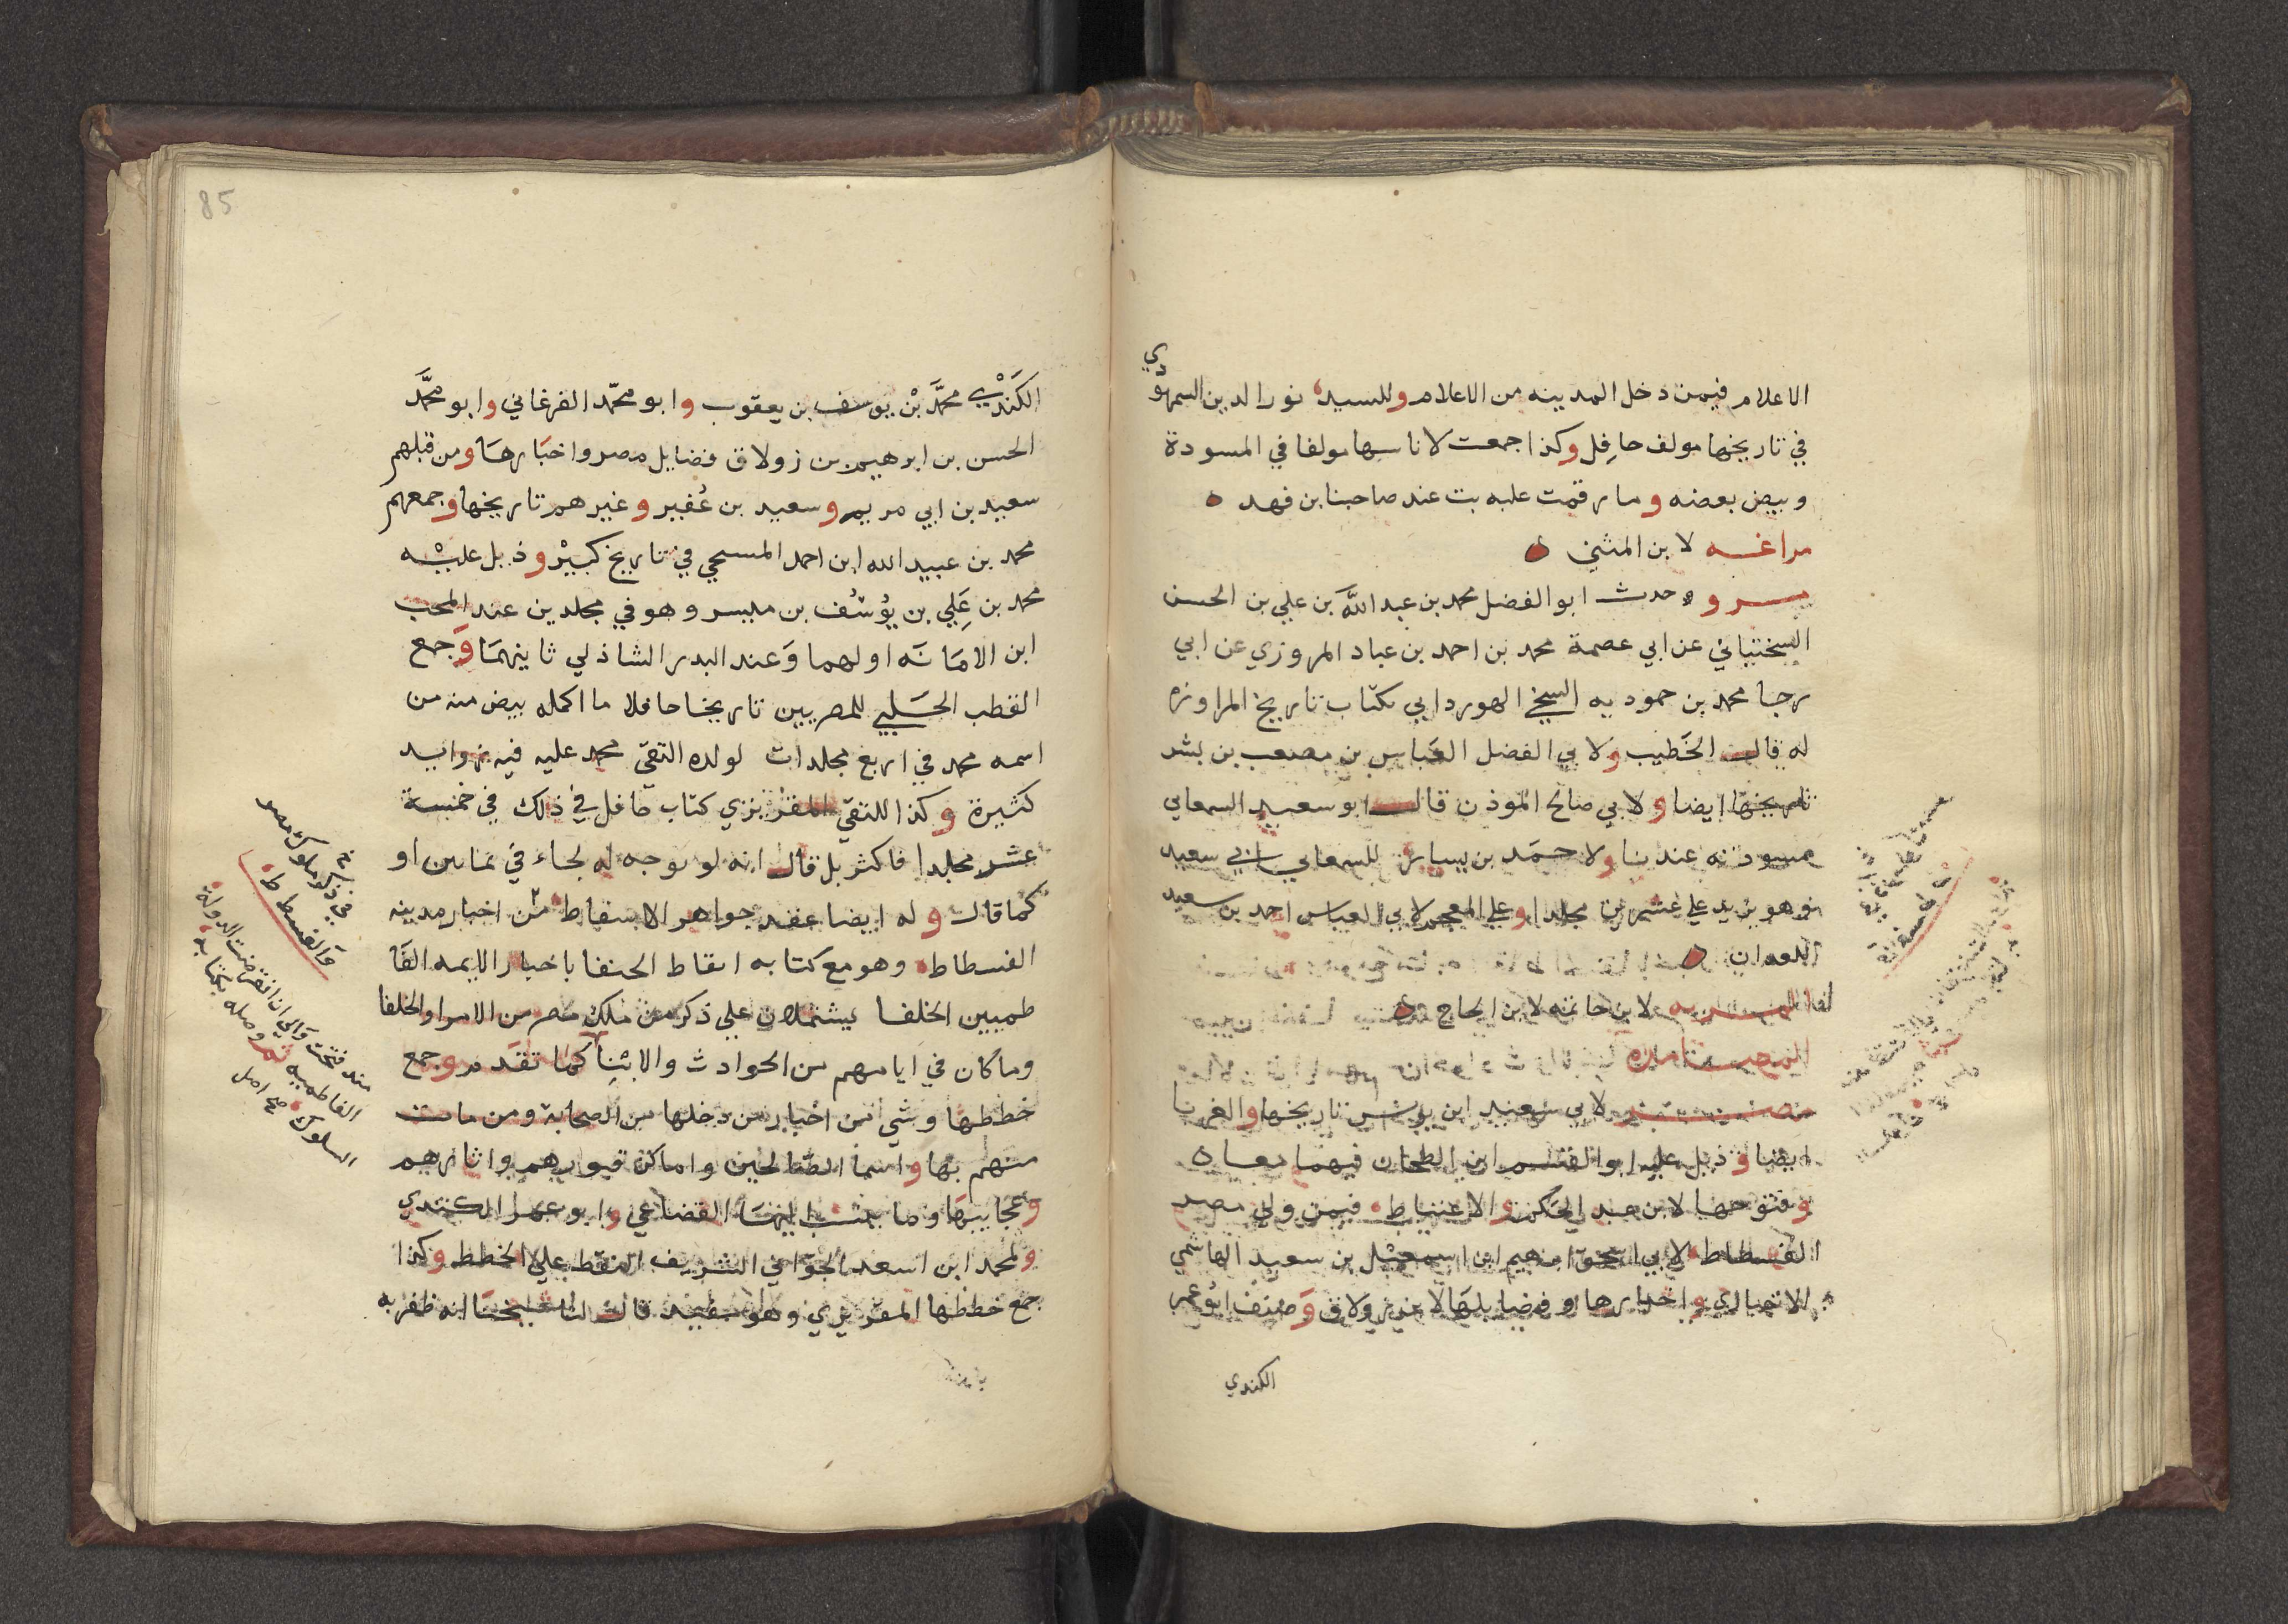 الاعلام فيمن دخل المدينه من الاعلام وللسيد نور الدين السمهودي
في تاريخها مولف حافل وكذا جمعت لاناسها مولفا في المسودة
وبيض بعضه وما رقمت عليه بت عند صاحبنا بن فهد
مراغه لابن المثني
مرو وحدث ابو الفضل محمد بن عبد الله بن علي بن الحسن
السختياني عن ابي عصمة محمد بن احمد بن عباد المروزي عن ابي
رجا محمد بن حمدويه السنجي الهورداني بكتاب تاريخ المراوزه
له قال الخطيب ولابي الفضل العباس بن مصعب بن بشر
تاريخها ايضا ولابي صالح الموذن قال ابو سعيد السمعاني
مسودته عندنا ولاحمد بن يسار وللسمعاني ابي سعيد
وهو يزيد علي عشرين مجلدا وعلي المعجم لابي العباس احمد بن سعيد
المعداني
المريه لابن خاتمه لابن الحاج
مصر لابي سعيد ابن يونس تاريخها والغربا
ايضا وذيل عليه ابو القسم ابن الطحان فيهما معا
وفتوحها لابن عبد الحكم والاغتباط فيمن ولي مصر
الفسطاط لابي اسحق ابرهيم ابن اسمعيل بن سعيد الهاشمي
واخبارها وفضايلها لابن زولاق وصنف ابو عمر
الكندي
85
الكندي محمد بن يوسف بن يعقوب وابو محمد الفرغاني وابو محمد
الحسن بن ابرهيم بن زولاق فضايل مصر واخبارها ومن قبلهم
سعيد بن ابي مريم وسعيد بن عفير وغيرهم تاريخها وجمعهم
محمد بن عبيد الله ابن احمد المسبحي في تاريخ كبير وذيل عليه
محمد بن علي بن يوسف بن ميسر وهو في مجلدين عند المحب
ابن الامانه اولهما وعند البدر الشاذلي ثانيهما وجمع
القطب الحلبي للمصريين تاريخا حافلا ما اكمله بيض منه من
اسمه محمد في اربع مجلدات لولده التقي محمد عليه فيه زوايد
كثيرة وكذا للتقي المقريزي كتاب حافل في ذلك في خمسة
عشر مجلدا فاكثر بل قال انه لو توجه له لجاء في ثمانين او
كما قال وله ايضا عقد جواهر الاسفاط من اخبار مدينه
الفسطاط وهو مع كتابه اتعاظ الحنفا باخبار الايمه الفا
طميين الخلفا يشتملان علي ذكر من ملك مصر من الامرا والخلفا
وما كان في ايامهم من الحوادث والانبا كما تقدم وجمع
خططها وشي من اخبار من دخلها من الصحابة ومن مات
منهم بها واسما الصالحين واماكن قبورهم واثارهم
وعجايبها وما ينسب اليها القضاعي وابو عمرا الكندي
ولمحمد ابن اسعد الجواني الشريف النقط علي الخطط وكذا
جمع خططها المقريزي وهو مفيد قال لنا شيخنا انه ظفر به
في ذكر ملوك مصر
والفسطاط
منذ فتحت والي ان انقرضت الدولة
الفاطميه ثم وصله بكتابه
السلوك صح اصل